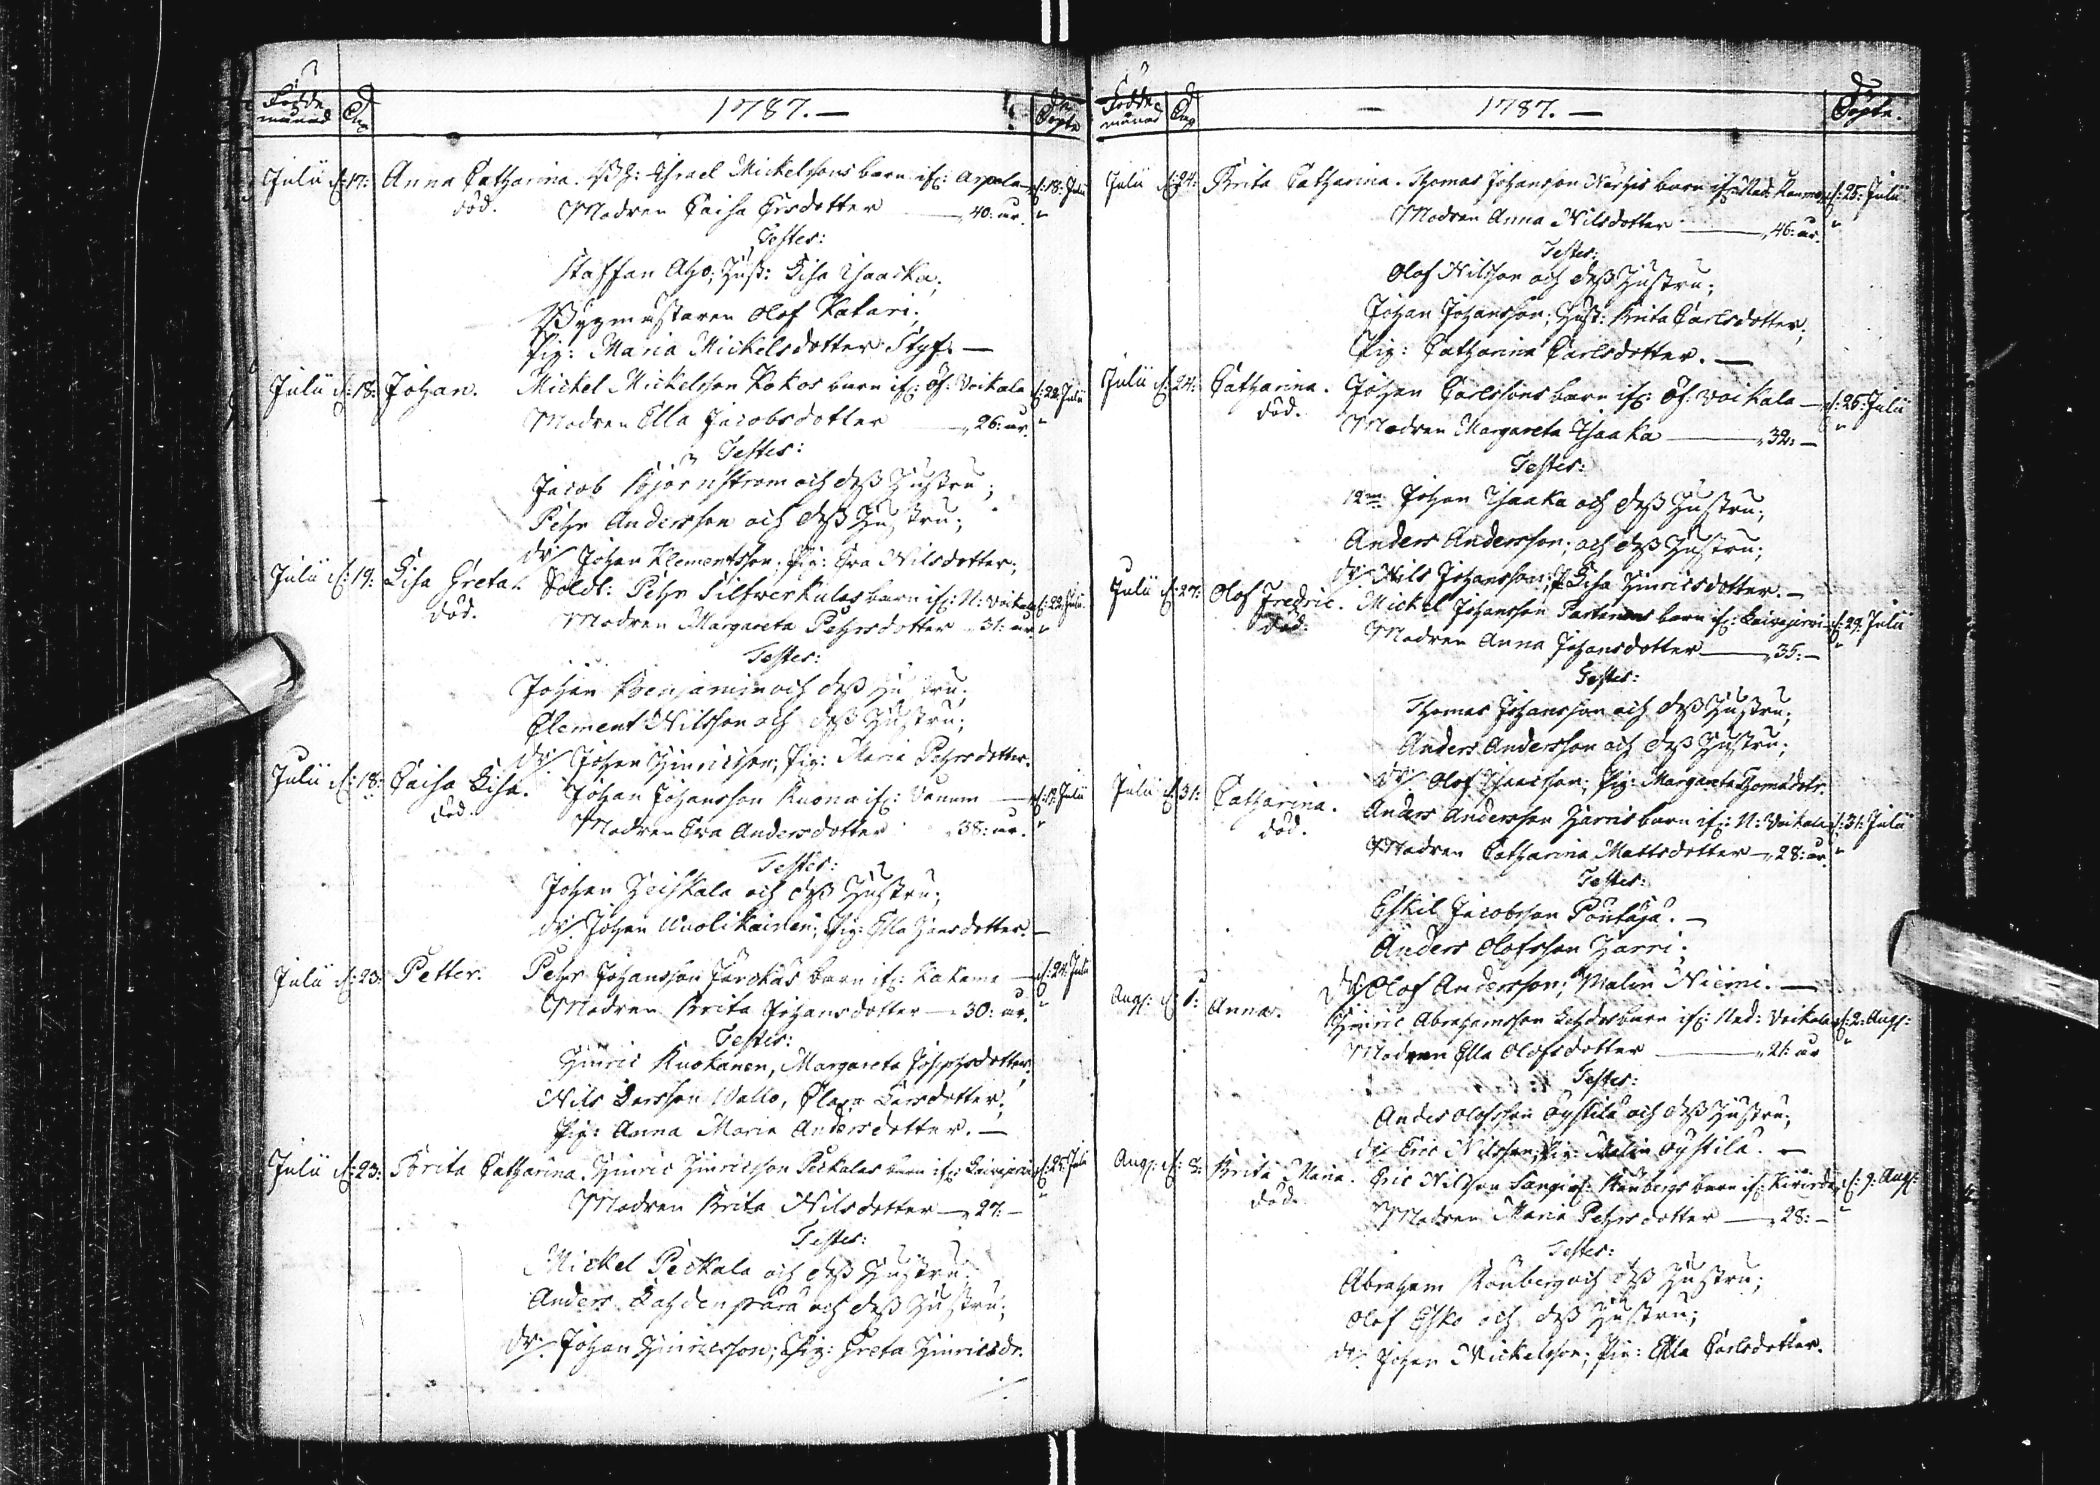 Födde månad Dag 1787. — Dag Döpte
Julii d: 17: Anna Catharina. Israel Mickelssons barn ifr: Arpela d: 18: Julii
död. Modren Caisa Ersdotter — 40: år.
Testes:
Staffan Aho; Hust: Lisa Isaacka;
Byggmästaren Olof Katari;
Pig: Maria Mickelsdotter Styf. —
Julii d: 18: Johan. Mickel Mickelsson Kokos barn ifr: Öf: Voikala d: 22: Julii
Modren Ella Jacobsdotter — 26: år.
Testes:
Jacob Björnström och dess Hustru;
Pehr Andersson och dess Hustru;
Dr: Johan Klementsson; Pig: Eva Nilsdotter;
Julii d: 19: Lisa Greta. Soldt: Pehr Silfwerkulas barn ifr: N: Voikala d: 22: Julii
död. Modren Margareta Pehrsdotter — 31: år
Testes:
Johan Benjamin och dess Hustru;
Clement Nilsson och dess Hustru;
Dr: Johan Hinricsson; Pig: Maria Pehrsdotter.
Julii d: 18: Caisa Lisa. Johan Johansson Kuona ifr: — d: 19: Julii
död. Modren Eva Andersdotter — 38: år.
Testes:
Johan Heiskala och dess Hustru;
Dr: Johan Wuolikainen; Pig: Ella Hansdotter. —
Julii d: 23: Petter. Pehr Johansson barn ifr: Kakama — d: 24: Julii
Modren Brita Johansdotter — 30: år.
Testes:
Hinric Kuokanen, Margareta Josephsdotter;
Nils Larsson Wallo, Clara Larsdotter;
Pig: Anna Maria Andersdotter. —
Julii d: 23: Brita Catharina. Hinric Hinricsson Peckalas barn ifr: Leivejärvi d: 25: Julii
Modren Brita Nilsdotter — 27: —
Testes:
Mickel Peckala och dess Hustru;
Anders Lahdenperä och dess Hustru;
Dr: Johan Hinricsson; Pig: Greta Hinricsdr.
Födde månad Dag — 1787. — Dag Döpte.
Julii d: 24: Brita Catharina. Thomas Johansson barn ifr: d: 25: Julii
Modren Anna Nilsdotter — 46: år.
Testes:
Olof Nilsson och dess Hustru;
Johan Johansson; Hust: Brita Carlsdotter;
Pig: Catharina Carlsdotter. —
Julii d: 24: Catharina. Johan Carlssons barn ifr: Öf: Voikala — d: 26: Julii
död. Modren Margareta Isaaka — 32: —
Testes:
12m: Johan Isaaka och dess Hustru;
Anders Andersson; och dess Hustru;
Dr: Nils Johansson; P: Lisa Hinricsdotter. —
Julii d: 27: Olof Fredric. Mickel Johansson Partanens barn ifr: Leivejärvi d: 29: Julii
död. Modren Anna Johansdotter — 35: —
Testes:
Thomas Johansson och dess Hustru;
Anders Andersson och dess Hustru;
Dr: Olof Isaacsson; Pig: Margareta Thomædotr.
Julii d: 31: Catharina. Anders Andersson Harris barn ifr: N: Voikala d: 31: Julii
död. Modren Catharina Mattsdotter — 28: år.
Testes:
Eskil Jacobsson Pontäjä. —
Anders Olofsson Harri;
Dr: Olof Andersson; Malin Niemi. —
Aug: d: 1: Anna. Hinric Abrahamsson barn ifr: Ned: Voikala d: 2: Aug:
Modren Ella Olofsdotter — 21: år
Testes:
Anders Olofsson Öystilä och dess Hustru;
Dr: Eric Nilsson; Pig: Malin Öystilä. —
Aug: d: 8: Brita Maria. Eric Nilsson Rönbergs barn ifr: d: 9: Aug:
död. Modren Maria Pehrsdotter — 28: —
Testes:
Abraham Rönberg och dess Hustru;
Olof Esko och dess Hustru;
Dr: Johan Mickelsson; Pig: Ella Carlsdotter.